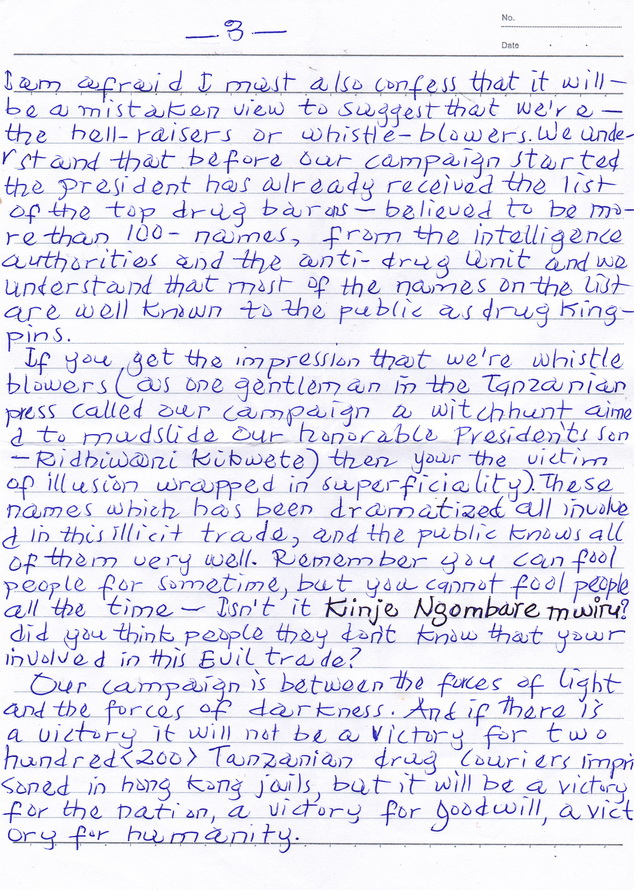 — 3 —
No.
Date . .
I am afraid I must also confess that it will-
be a mistaken view to suggest that we're —
the hell-raisers or whistle-blowers. We unde-
rstand that before our campaign started
the president has already received the list
of the top drug barons — believed to be mo-
re than 100- names, from the intelligence
authorities and the anti-drug Unit and we
understand that most of the names on the list
are well known to the public as drug King-
pins.
If you get the impression that we're whistle
blowers (as one gentleman in the Tanzanian
press called our campaign a witchhunt aime
d to mudslide our honorable President's son
— Ridhiwani Kikwete) then your the victim
of illusion wrapped in superficiality). These
names which has been dramatized all involve
d in this illicit trade, and the public knows all
of them very well. Remember you can fool
people for sometime, but you cannot fool people
all the time — Isn't it Kinje Ngombare mwiru?
did you think people they don't know that your
involved in this Evil trade?
Our campaign is between the forces of light
and the forces of darkness. And if there is
a victory it will not be a victory for two
hundred <200> Tanzanian drug couriers impri
soned in hong Kong jails, but it will be a victory
for the nation, a victory for goodwill, a vict
ory for humanity.